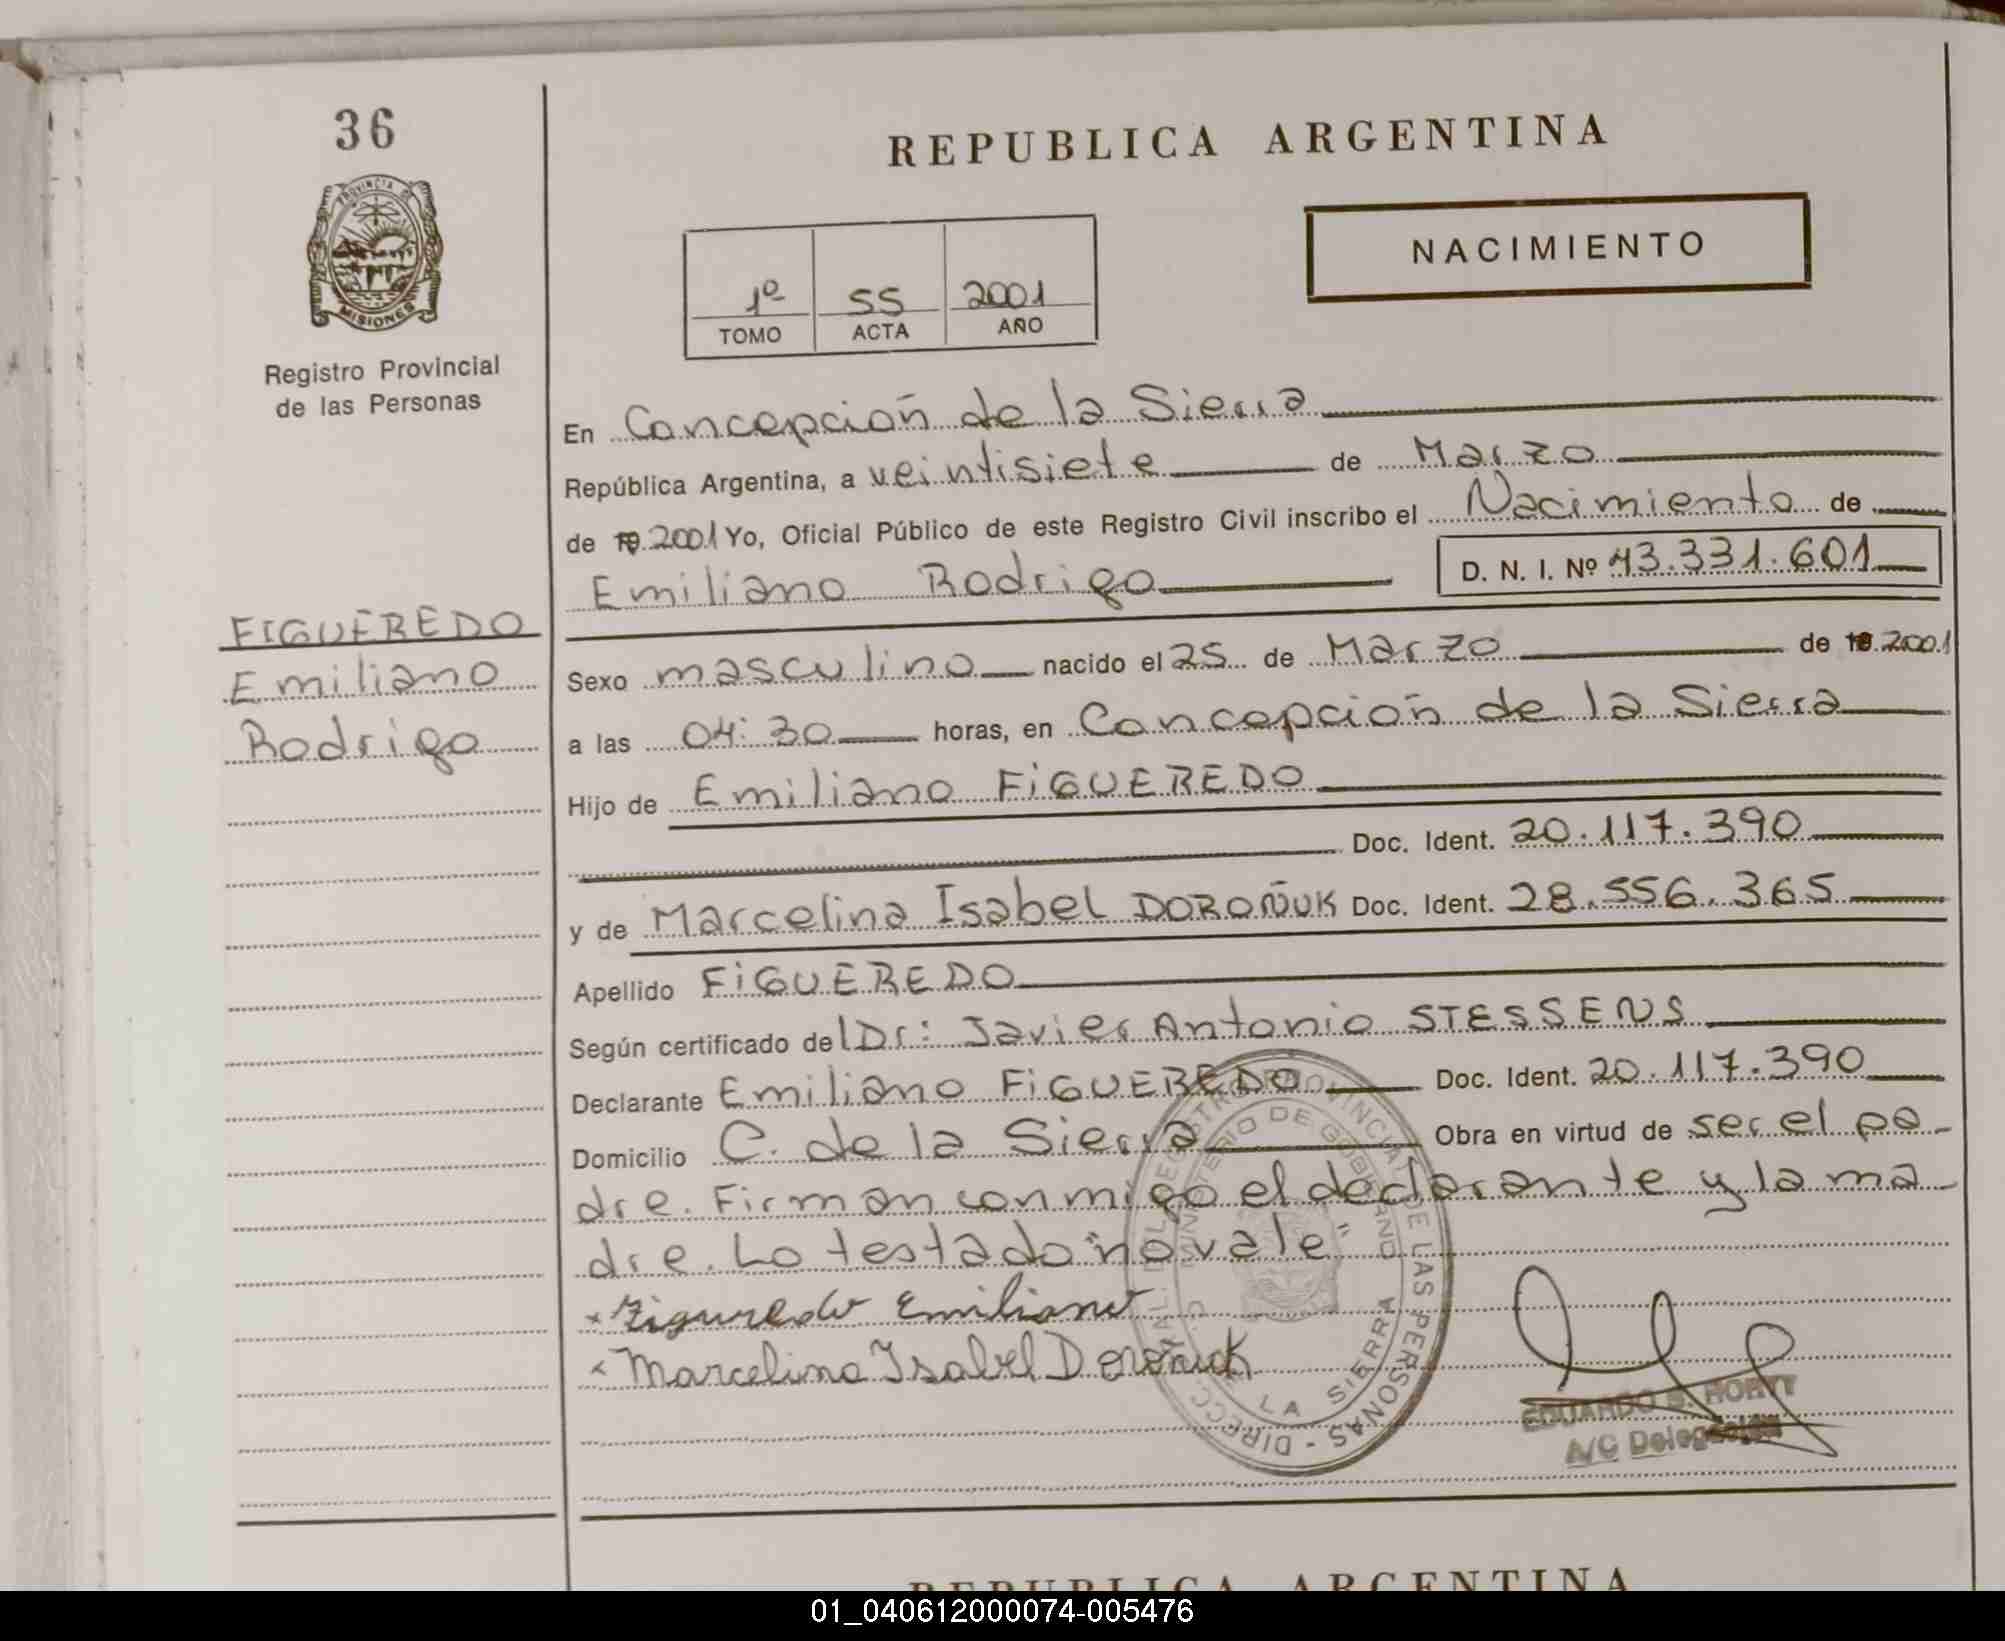 36
PROVINCIA DE
MISIONES
Registro Provincial
de las Personas
REPUBLICA ARGENTINA
NACIMIENTO
1º SS 2001
TOMO ACTA AÑO
En Concepción de la Sierra
República Argentina, a veintisiete de Marzo
de 19 2001 Yo, Oficial Público de este Registro Civil inscribo el Nacimiento de
Emiliano Rodrigo D. N. I. Nº 43.331.601
FIGUEREDO
Emiliano
Rodrigo
Sexo masculino nacido el 25 de Marzo de 19 2001
a las 04:30 horas, en Concepción de la Sierra
Hijo de Emiliano FIGUEREDO
Doc. Ident. 20.117.390
y de Marcelina Isabel DOROÑUK Doc. Ident. 28.556.365
Apellido FIGUEREDO
Según certificado del Dr: Javier Antonio STESSENS
Declarante Emiliano FIGUEREDO Doc. Ident. 20.117.390
Domicilio C. de la Sierra Obra en virtud de ser el pa-
dre. Firman conmigo el declarante y la ma-
dre. Lo testado "no vale"
Figueredo Emiliano
Marcelina Isabel Doroñuk
DIRECC. GRAL. DEL REGISTRO PROVINCIAL DE LAS PERSONAS -
MINISTERIO DE GOBIERNO
C. LA SIERRA
EDUARDO S. HORTT
A/C Delegación
REPUBLICA ARGENTINA
01_040612000074-005476